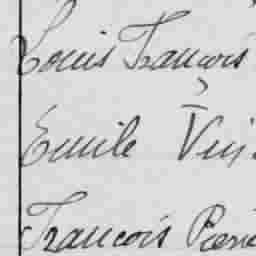 Louis François
Emile
François Pierre